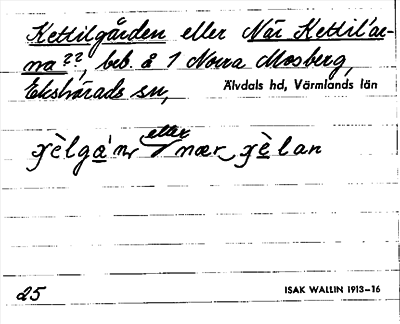 Kettilgården eller När Kettil'ar-
na??, beb. å 1 Norra Mosberg,
Ekshärads sn, Älvdals hd, Värmlands län
eller
nær
25 ISAK WALLIN 1913–16